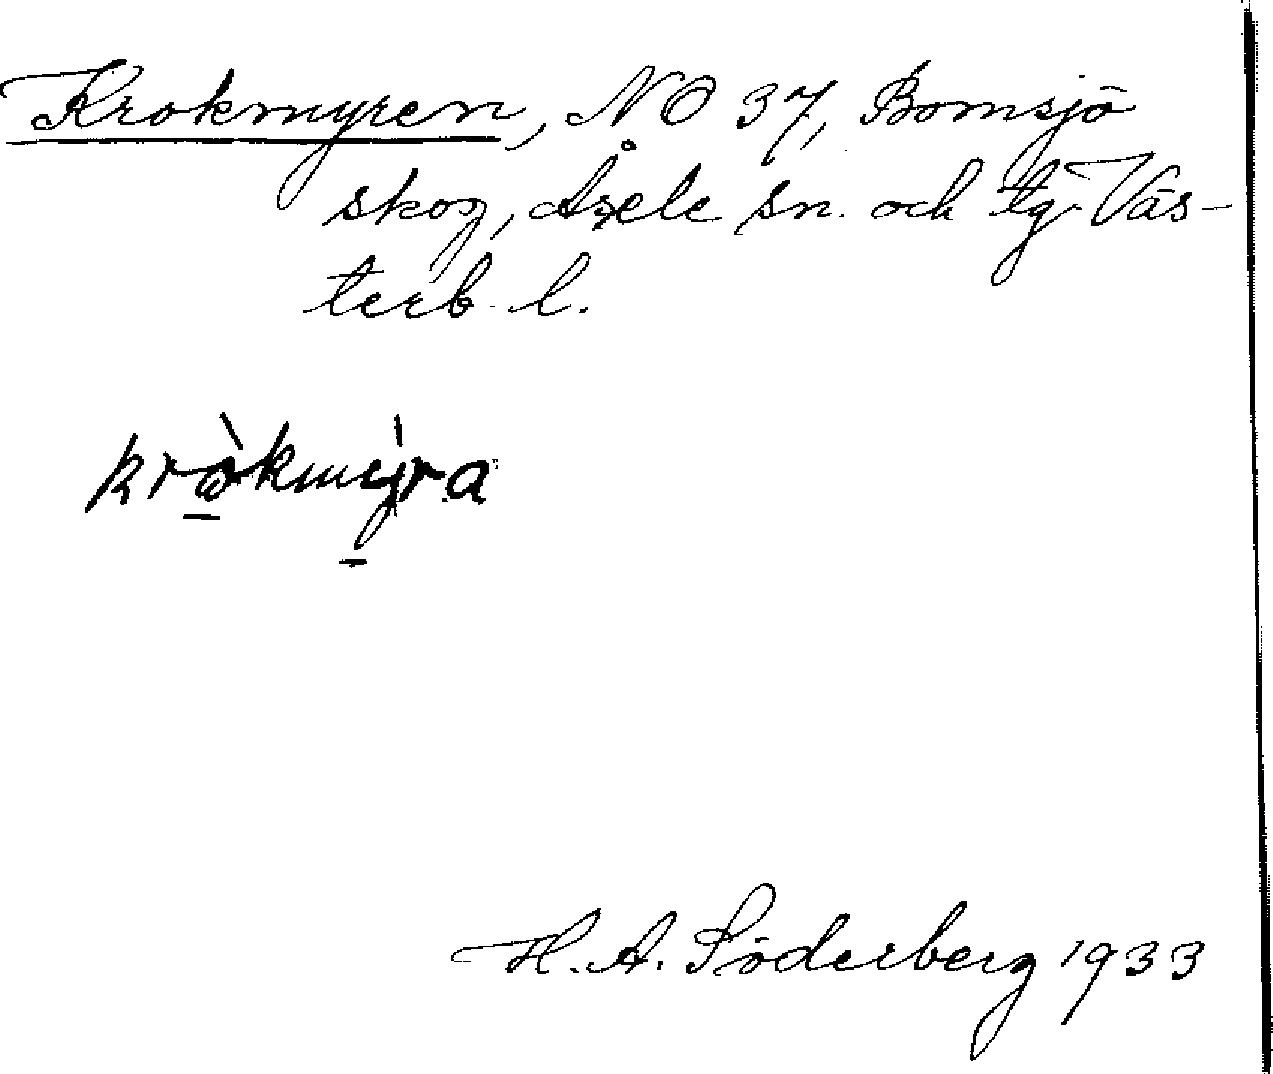 Krokmyren, NO 37, Bomsjö
skog, Åsele sn. och tg Väs-
terb. l.
kròkmy̱ra
H. A. Söderberg 1933